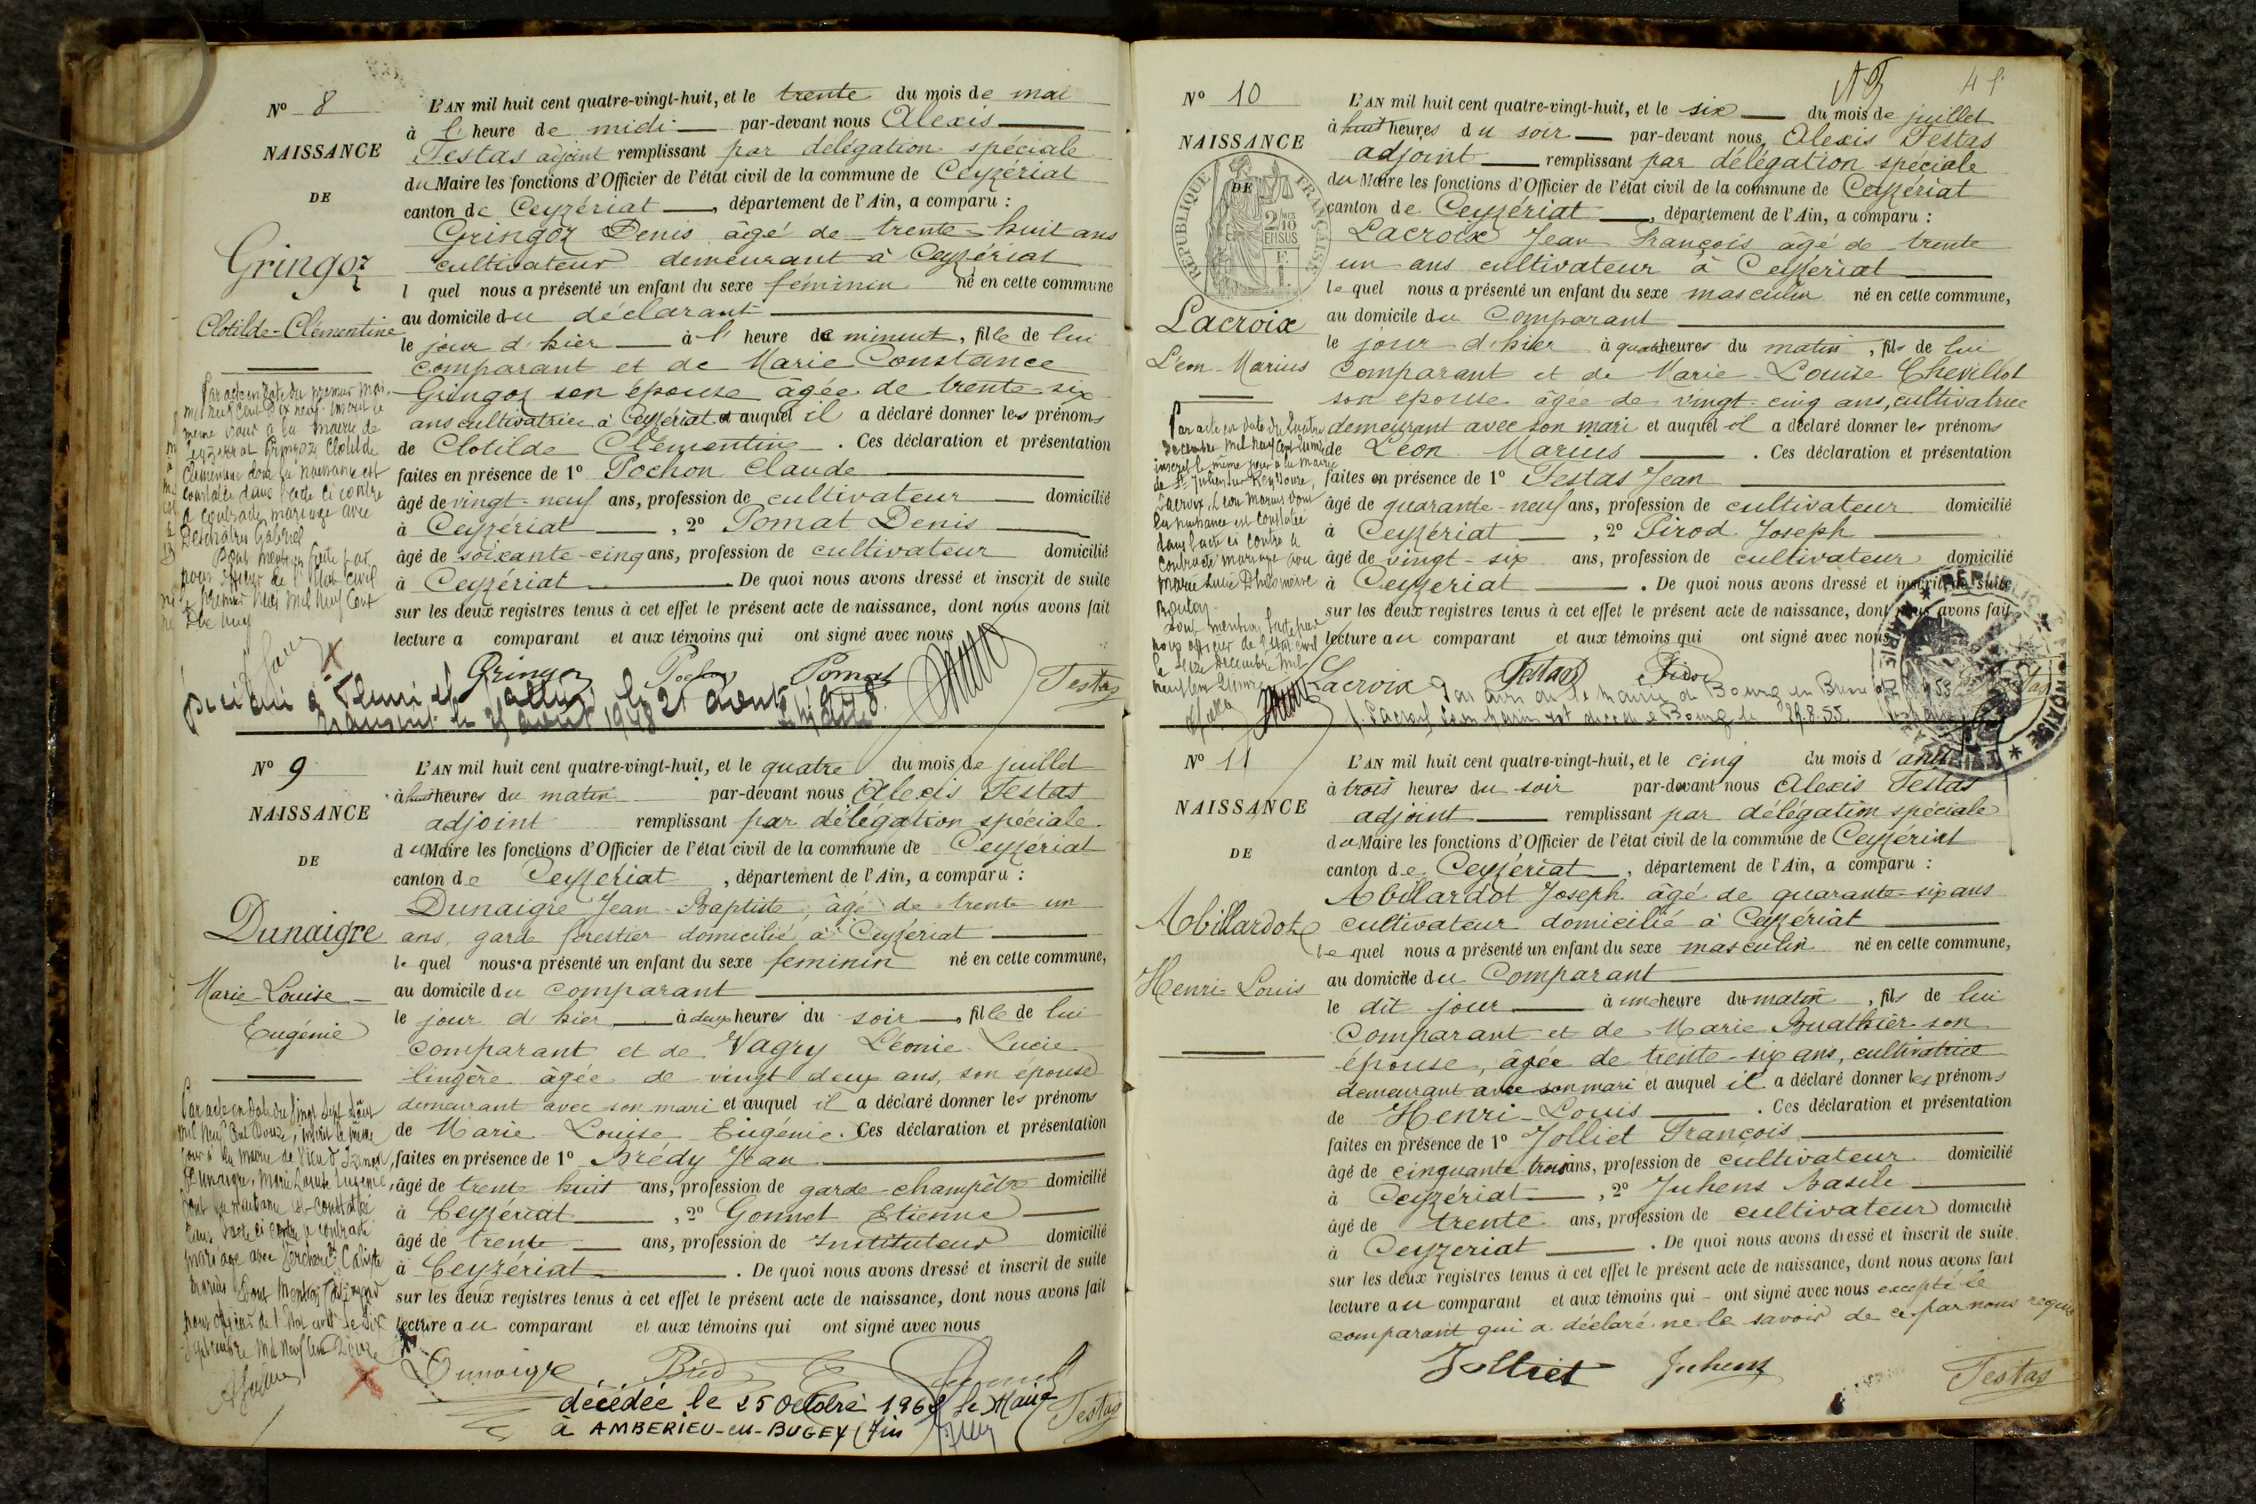 N° 8
NAISSANCE
DE
Gringoz
Clotilde-Clémentine
Par acte en date du premier mai
mil neuf cent dix neuf inscrit le
même jour à la mairie de
Ceyzériat Gringoz Clotilde
Clémentine dont la naissance est
constatée dans l'acte ci contre
a contracté mariage avec
Deschâtres Gabriel
Dont mention faite par
nous officier de l'état civil
premier mai mil neuf cent
L'AN mil huit cent quatre-vingt-huit, et le trente du mois de mai
à l' heure de midi par-devant nous Alexis
Testas adjoint remplissant par délégation spéciale
du Maire les fonctions d'Officier de l'état civil de la commune de Ceyzériat
canton de Ceyzériat, département de l'Ain, a comparu :
Gringoz Denis âgé de trente-huit ans
cultivateur demeurant à Ceyzériat
l quel nous a présenté un enfant du sexe féminin né en cette commune
au domicile du déclarant
le jour d'hier à l' heure de minuit, fille de lui
comparant et de Marie Constance
Gringoz son épouse âgée de trente-six
ans cultivatrice à Ceyzériat et auquel il a déclaré donner les prénoms
de Clotilde Clémentine. Ces déclaration et présentation
faites en présence de 1° Pochon Claude
âgé de vingt-neuf ans, profession de cultivateur domicilié
à Ceyzériat, 2° Pomat Denis
âgé de soixante-cinq ans, profession de cultivateur domicilié
à Ceyzériat De quoi nous avons dressé et inscrit de suite
sur les deux registres tenus à cet effet le présent acte de naissance, dont nous avons fait
lecture a comparant et aux témoins qui ont signé avec nous
Gringoz Pochon Pomat Testas
le 21 août 1948
N° 9
NAISSANCE
DE
Dunaigre
Marie-Louise
Eugénie
Par acte en date du vingt sept août
mil neuf cent douze, inscrit le même
jour à la mairie de Vieu d'Izenave,
Dunaigre Marie Louise Eugénie,
dont la naissance est constatée
dans l'acte ci contre a contracté
mariage avec Calixte
Marius Dont mention
nous officier de l'état civil le six
septembre mil neuf cent douze
L'AN mil huit cent quatre-vingt-huit, et le quatre du mois de juillet
à huit heures du matin par-devant nous Alexis Testas
adjoint remplissant par délégation spéciale
du Maire les fonctions d'Officier de l'état civil de la commune de Ceyzériat
canton de Ceyzériat, département de l'Ain, a comparu :
Dunaigre Jean-Baptiste, âgé de trente un
ans, garde forestier domicilié à Ceyzériat
le quel nous a présenté un enfant du sexe féminin né en cette commune,
au domicile du comparant
le jour d'hier à deux heures du soir, fille de lui
comparant et de Vagry Léonie Lucie
lingère âgée de vingt deux ans, son épouse
demeurant avec son mari et auquel il a déclaré donner les prénoms
de Marie Louise Eugénie. Ces déclaration et présentation
faites en présence de 1° Brédy Jean
âgé de trente huit ans, profession de garde-champêtre domicilié
à Ceyzériat, 2° Gonnet Etienne
âgé de trente ans, profession de Instituteur domicilié
à Ceyzériat. De quoi nous avons dressé et inscrit de suite
sur les deux registres tenus à cet effet le présent acte de naissance, dont nous avons fait
lecture au comparant et aux témoins qui ont signé avec nous
Dunaigre
décédée le 25 Octobre 196 le Maire
à AMBERIEU-en-BUGEY (Ain
Testas
N° 10
NAISSANCE
DE
RÉPUBLIQUE FRANÇAISE
Lacroix
Léon-Marius
Par acte en date du quatre
décembre mil neuf cent
inscrit le même jour à la mairie
de St Julien sur Reyssouze,
Lacroix Léon Marius dont
la naissance est constatée
dans l'acte ci contre a
contracté mariage avec
Marie Lucie Philomène
Bouton
Dont mention faite par
nous officier de l'état civil
le seize décembre mil
neuf cent
L'AN mil huit cent quatre-vingt-huit, et le six du mois de juillet
à huit heures du soir par-devant nous Alexis Testas
adjoint remplissant par délégation spéciale
du Maire les fonctions d'Officier de l'état civil de la commune de Ceyzériat
canton de Ceyzériat, département de l'Ain, a comparu :
Lacroix Jean François âgé de trente
un ans cultivateur à Ceyzériat
le quel nous a présenté un enfant du sexe masculin né en cette commune,
au domicile du comparant
le jour d'hier à quatre heures du matin, fils de lui
comparant et de Marie-Louise Chevillot
son épouse âgée de vingt-cinq ans, cultivatrice
demeurant avec son mari et auquel il a déclaré donner les prénoms
de Léon Marius. Ces déclaration et présentation
faites en présence de 1° Testas Jean
âgé de quarante-neuf ans, profession de cultivateur domicilié
à Ceyzériat, 2° Pirod Joseph
âgé de vingt-six ans, profession de cultivateur domicilié
à Ceyzériat. De quoi nous avons dressé et inscrit de suite
sur les deux registres tenus à cet effet le présent acte de naissance, dont nous avons fait
lecture au comparant et aux témoins qui ont signé avec nous
Lacroix Testas Pirod
Par avis de le Maire de Bourg en Bresse
Lacroix Léon Marius est décédé à Bourg le 29.8.55.
N° 11
NAISSANCE
DE
Abillardot
Henri-Louis
L'AN mil huit cent quatre-vingt-huit, et le cinq du mois d'août
à trois heures du soir par-devant nous Alexis Testas
adjoint remplissant par délégation spéciale
du Maire les fonctions d'Officier de l'état civil de la commune de Ceyzériat
canton de Ceyzériat, département de l'Ain, a comparu :
Abillardot Joseph âgé de quarante-six ans
cultivateur domicilié à Ceyzériat
le quel nous a présenté un enfant du sexe masculin né en cette commune,
au domicile du comparant
le dit jour à une heure du matin, fils de lui
comparant et de Marie Buathier son
épouse, âgée de trente-six ans, cultivatrice
demeurant avec son mari et auquel il a déclaré donner les prénoms
de Henri-Louis. Ces déclaration et présentation
faites en présence de 1° Jolliet François
âgé de cinquante trois ans, profession de cultivateur domicilié
à Ceyzériat, 2° Juhens Basile
âgé de trente ans, profession de cultivateur domicilié
à Ceyzeriat. De quoi nous avons dressé et inscrit de suite
sur les deux registres tenus à cet effet le présent acte de naissance, dont nous avons fait
lecture au comparant et aux témoins qui ont signé avec nous excepté le
comparant qui a déclaré ne le savoir de ce par nous requis
Jolliet Juhens Testas